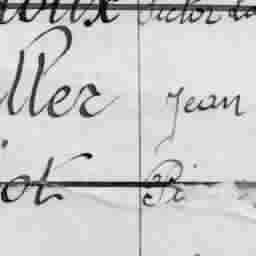 oux Victor
ller Jean
iot Pi